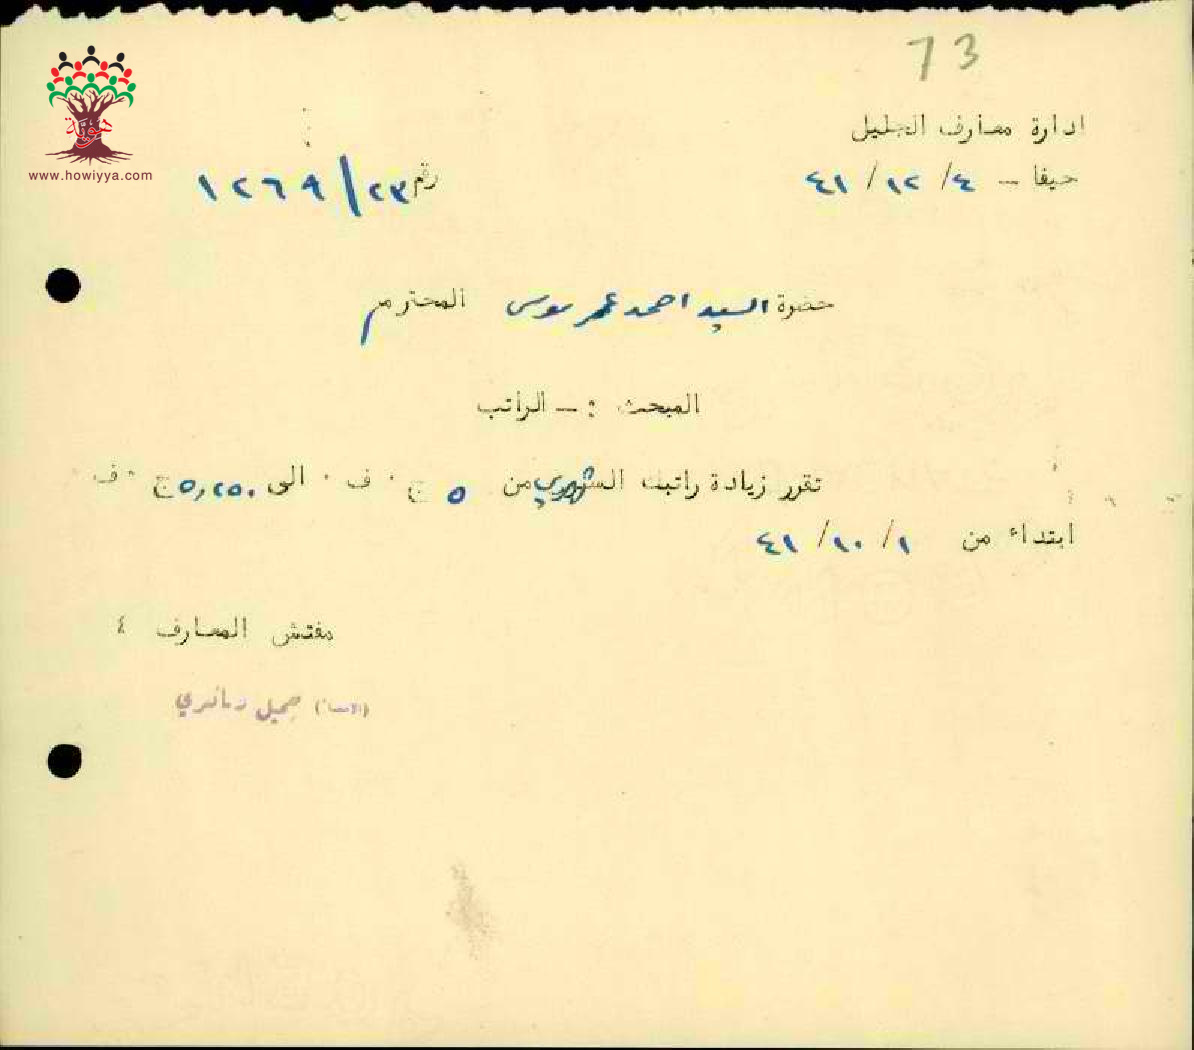 73
هوية
www.howiyya.com
ادارة معارف الجليل
حيفا – ٤/ ١٢/ ٤١
رقم ٢٣/ ١٢٦٩
حضرة السيد احمد عمر موسى المحترم
المبحث :– الراتب
تقرر زيادة راتبك الشهري من ٥ ج٠ ف٠ الى ٥,٢٥٠ ج٠ ف
ابتداء من ١/ ١٠/ ٤١
مفتش المعارف ٤
جميل